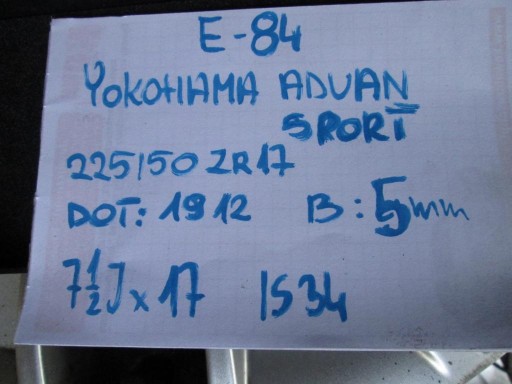 E-84
YOKOHAMA ADVAN
SPORT
225/50 ZR17
DOT: 1912 B: 5mm
7 1/2 J x 17 IS34